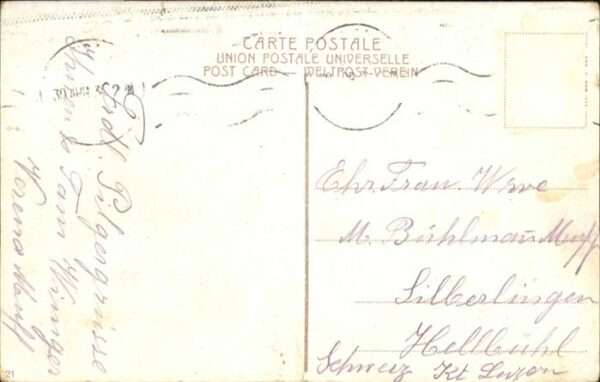 CARTE POSTALE
UNION POSTALE UNIVERSELLE
POST CARD — WELTPOST-VEREIN
Frdl. Pilgergrüsse
Ihnen & Fam
Verena Muff
Ehr. Frau. Wwe
M. Bühlman̄ Muff
Silberlingen
Hellbühl
Schweiz Kt Luzern
21